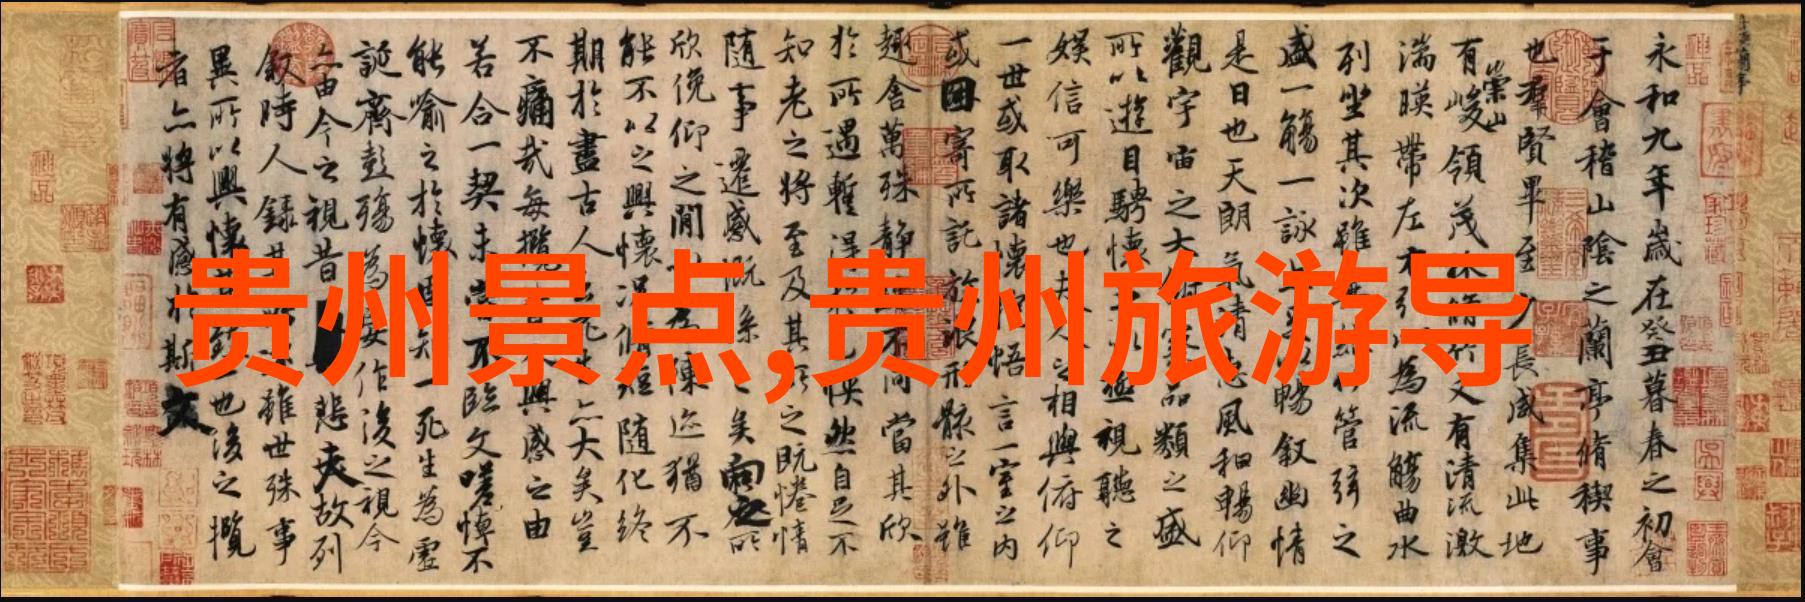 贵州景点,贵州旅游导
永和九年歲在癸丑暮春之初會
于會稽山陰之蘭亭脩稧事
也羣賢畢至少長咸集此地
有崇山峻領茂林脩竹又有清流激
湍暎帶左右引以為流觴曲水
列坐其次雖無絲竹管弦之
盛一觴一詠亦足以暢叙幽情
是日也天朗氣清惠風和暢仰
觀宇宙之大俯察品類之盛
所以遊目騁懷足以極視聽之
娛信可樂也夫人之相與俯仰
一世或取諸懷抱悟言一室之內
或因寄所託放浪形骸之外雖
趣舍萬殊静躁不同當其欣
於所遇蹔得於己怏然自足不
知老之將至及其所之既惓情
隨事遷感慨係之矣向之所
欣俛仰之閒以為陳迹猶不
能不以之興懷況脩短隨化終
期於盡古人云死生亦大矣豈
不痛哉每攬昔人興感之由
若合一契未嘗不臨文嗟悼不
能喻之於懷固知一死生為虛
誕齊彭殤為妄作後之視今
亦由今之視昔悲夫故列
叙時人錄其所述雖世殊事
異所以興懷其致一也後之攬
者亦將有感於斯文